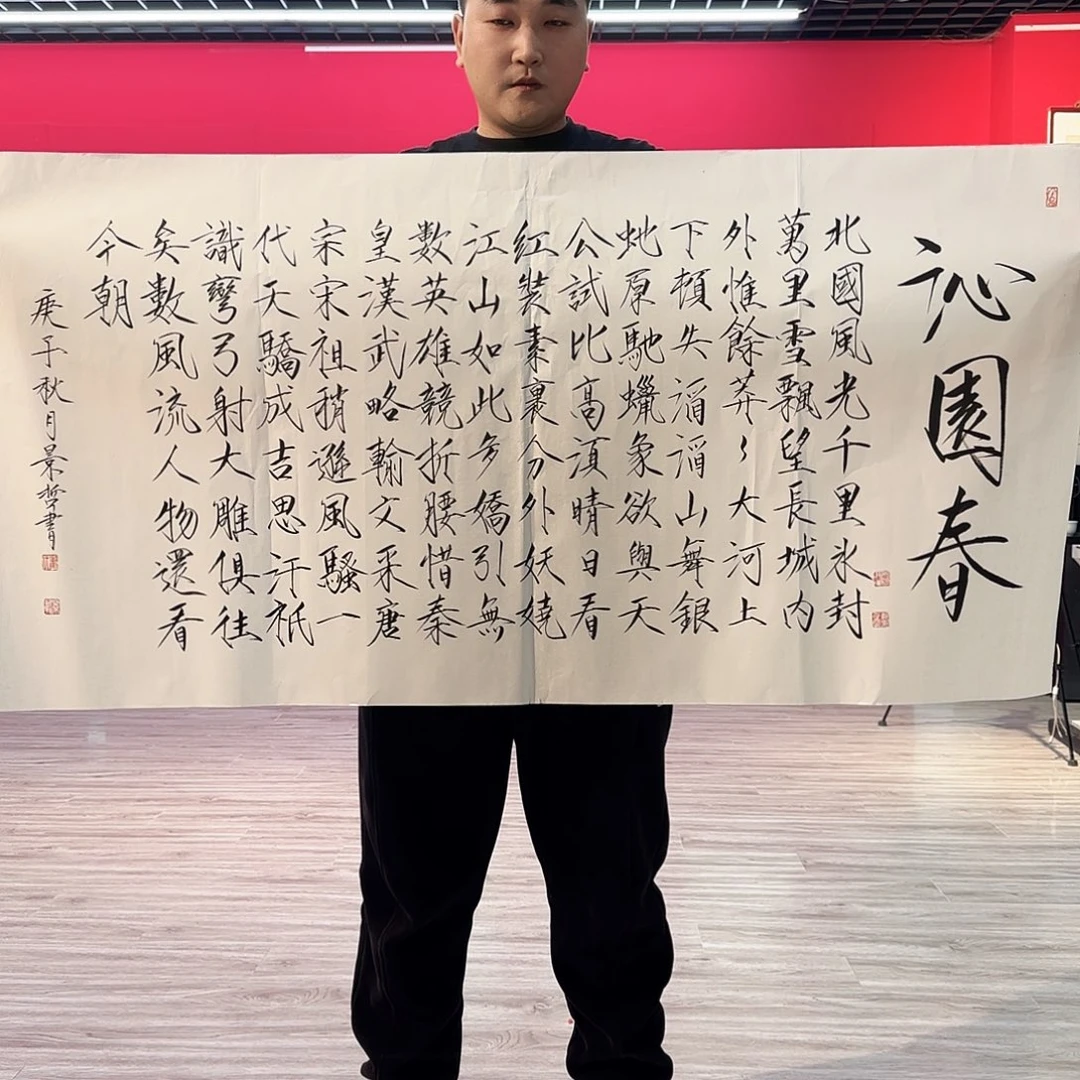 沁園春
北國風光千里氷封
萬里雪飄望長城内
外惟餘莽〻大河上
下頓失滔滔山舞銀
虵原馳蠟象欲與天
公試比高須晴日看
紅裝素裹分外妖嬈
江山如此多嬌引無
数英雄競折腰惜秦
皇漢武略輸文采唐
宋宋祖稍遜風騷一
代天驕成吉思汗祇
識彎弓射大雕俱往
矣數風流人物還看
今朝
庚子秋月景哲書